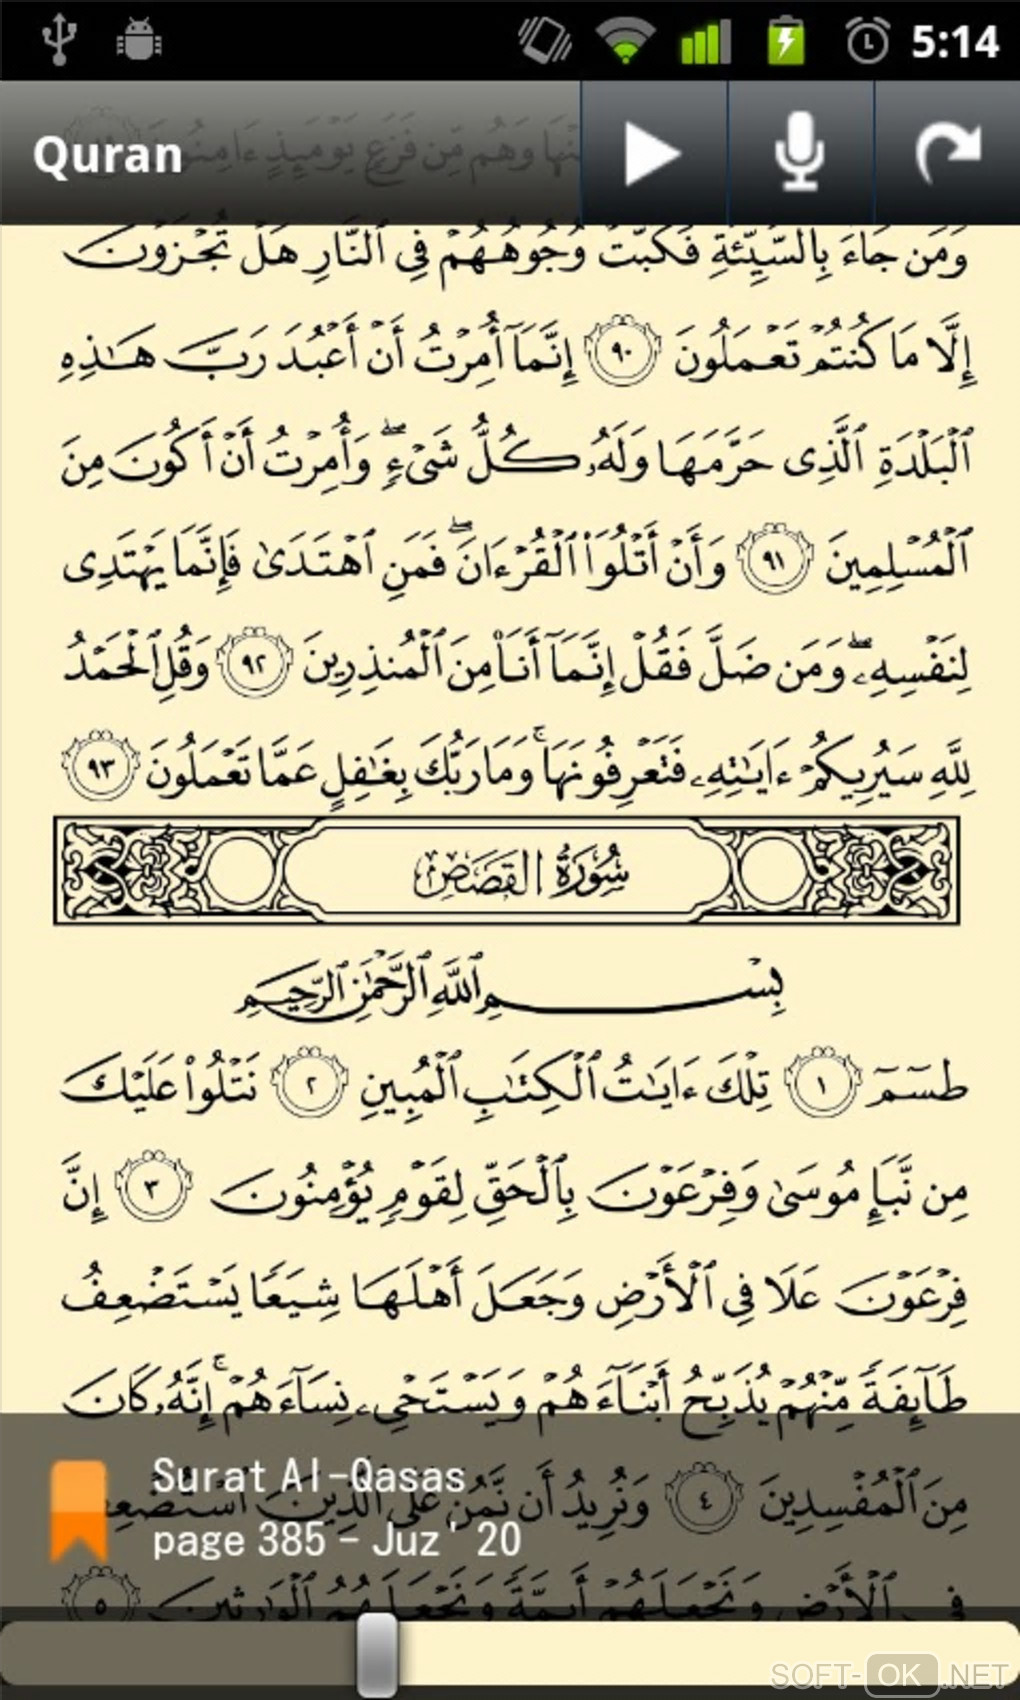 5:14
Quran
وَهُم مِّن فَزَعٍ يَوْمَئِذٍ ءَامِنُونَ ٨٩
وَمَن جَآءَ بِٱلسَّيِّئَةِ فَكُبَّتْ وُجُوهُهُمْ فِى ٱلنَّارِ هَلْ تُجْزَوْنَ
إِلَّا مَا كُنتُمْ تَعْمَلُونَ ٩٠ إِنَّمَآ أُمِرْتُ أَنْ أَعْبُدَ رَبَّ هَـٰذِهِ
ٱلْبَلْدَةِ ٱلَّذِى حَرَّمَهَا وَلَهُۥ كُلُّ شَىْءٍ ۖ وَأُمِرْتُ أَنْ أَكُونَ مِنَ
ٱلْمُسْلِمِينَ ٩١ وَأَنْ أَتْلُوَا۟ ٱلْقُرْءَانَ ۖ فَمَنِ ٱهْتَدَىٰ فَإِنَّمَا يَهْتَدِى
لِنَفْسِهِۦ ۖ وَمَن ضَلَّ فَقُلْ إِنَّمَآ أَنَا۠ مِنَ ٱلْمُنذِرِينَ ٩٢ وَقُلِ ٱلْحَمْدُ
لِلَّهِ سَيُرِيكُمْ ءَايَـٰتِهِۦ فَتَعْرِفُونَهَا ۚ وَمَا رَبُّكَ بِغَـٰفِلٍ عَمَّا تَعْمَلُونَ ٩٣
سُورَةُ القَصَصِ
بِسْمِ ٱللَّهِ ٱلرَّحْمَـٰنِ ٱلرَّحِيمِ
طسٓمٓ ١ تِلْكَ ءَايَـٰتُ ٱلْكِتَـٰبِ ٱلْمُبِينِ ٢ نَتْلُوا۟ عَلَيْكَ
مِن نَّبَإِ مُوسَىٰ وَفِرْعَوْنَ بِٱلْحَقِّ لِقَوْمٍ يُؤْمِنُونَ ٣ إِنَّ
فِرْعَوْنَ عَلَا فِى ٱلْأَرْضِ وَجَعَلَ أَهْلَهَا شِيَعًا يَسْتَضْعِفُ
طَآئِفَةً مِّنْهُمْ يُذَبِّحُ أَبْنَآءَهُمْ وَيَسْتَحْىِۦ نِسَآءَهُمْ ۚ إِنَّهُۥ كَانَ
مِنَ ٱلْمُفْسِدِينَ ٤ وَنُرِيدُ أَن نَّمُنَّ عَلَى ٱلَّذِينَ ٱسْتُضْعِفُوا۟
Surat Al-Qasas
page 385 - Juz' 20
فِى ٱلْأَرْضِ وَنَجْعَلَهُمْ أَئِمَّةً وَنَجْعَلَهُمُ ٱلْوَٰرِثِينَ ٥
SOFT-OK.NET